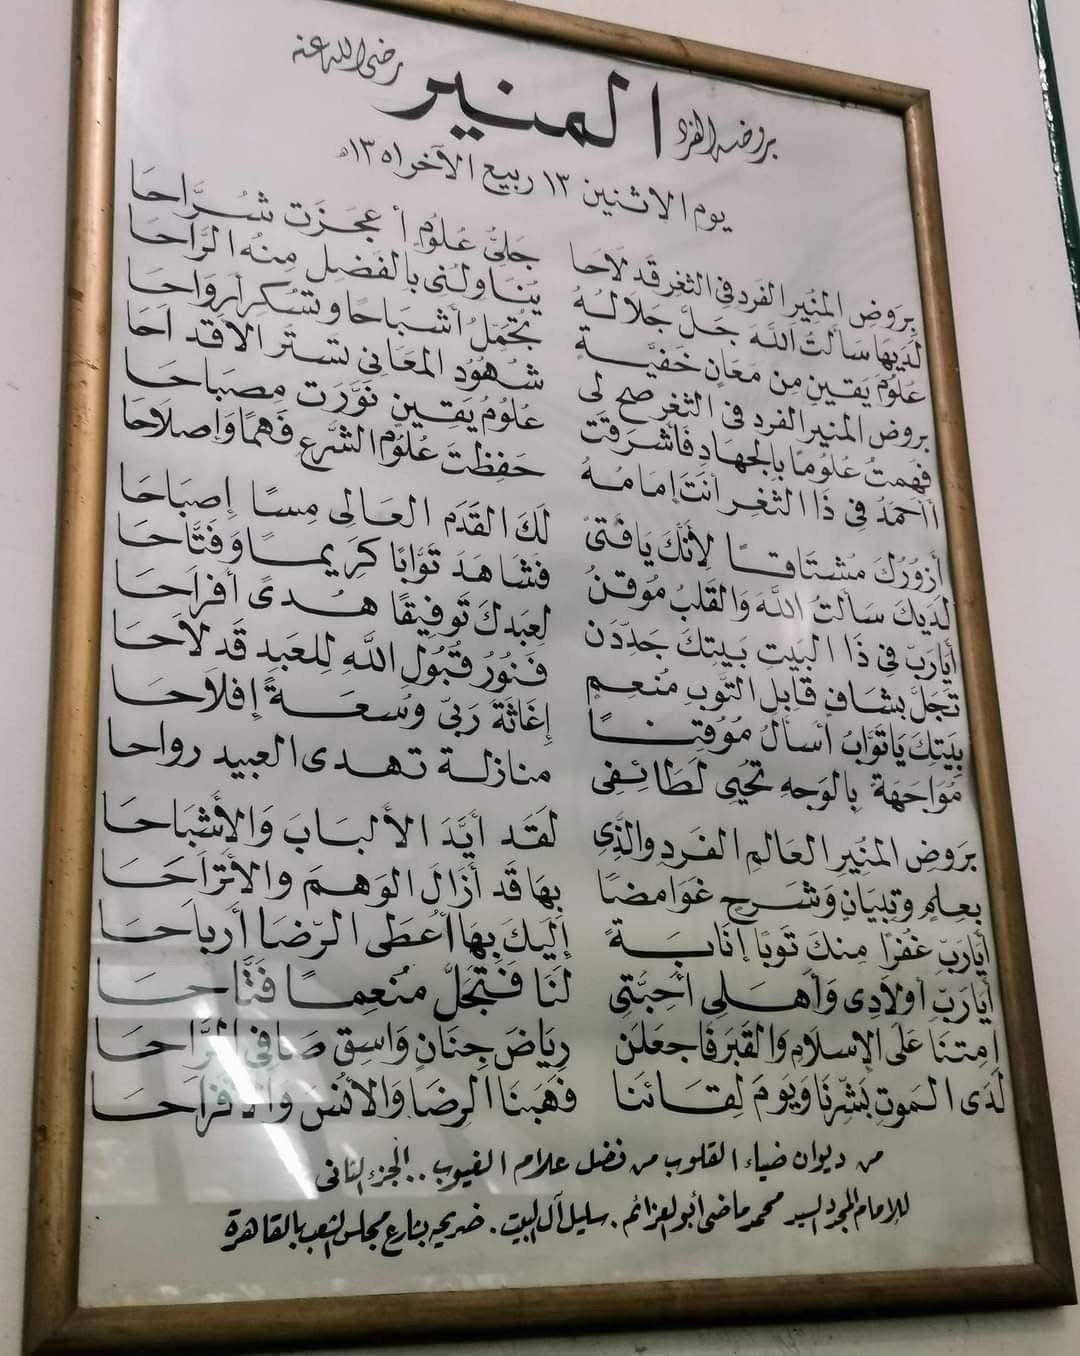 بروضه الفرد المنير رضى الله عنه
يوم الاثنين ١٣ ربيع الآخر ١٣٥١ه
بِرَوضِ المُنِيرِ الفَردِ فِى الثغرِ قَد لَاحَا جَلِىُّ عُلُومٍ أَعجَزَت شُرَّاحَا
لَدَيهَا سَأَلتُ اللَّهَ جَلَّ جَلَالُهُ يُنَاوِلُنِى بِالفَضلِ مِنهُ الرَّاحَا
عُلُومَ يَقِينٍ مِن مَعَانٍ خَفِيَّةٍ تُجَمِّلُ أَشبَاحًا وَتُسكِرُ أَروَاحَا
بروض المنير الفرد فى الثغر صح لى شُهُودُ المعَانِى تستر الأقداحَا
فَهِمتُ عُلُومًا بِالجِهَادِ فَأَشرَقَت عُلُومُ يَقِينٍ نَوَّرَت مِصبَاحَا
أأحمَدُ فِى ذَا الثغرِ أَنتَ إِمَامُهُ حَفِظتَ عُلُومَ الشَّرعِ فَهمًا وَإِصلَاحَا
أَزُورُكَ مُشتَاقًا لِأَنَّكَ يَا فَتىً لَكَ القَدَمِ العَالِى مِسًا إِصبَاحَا
لَدَيكَ سَأَلتُ اللَّهَ وَالقَلبُ مُوقِنُ فَشَاهَدَ تَوَّابًا كَرِيمًا وَفَتَّاحَا
أَيَارَبِّ فِى ذَا البَيتِ بَيتِكَ جَدِّدَن لِعَبدِكَ تَوفِيقًا هُدىً أَفرَاحَا
تَجَلَّ بِشَافٍ قَابِلِ التَّوبِ مُنعِمٍ فَنُورُ قُبُولِ اللَّهِ لِلعَبدِ قَد لَاحَا
بِبَيتِكَ يَا تَوَّابُ أَسأَلُ مُوقِنًا إِغَاثَةَ رَبِّى وُسعَةً إِفلَاحَا
مُوَاجَهَةً بِالوَجهِ تُحيِى لَطَائِفِى منازلة تهدى العبيد رواحا
بِرَوضِ المُنِيرِ العَالِمِ الفَردِ وَالَّذِى لَقَد أَيَّدَ الأَلبَابَ وَالأَشبَاحَا
بِعِلمٍ وَتِبيَانٍ وَشَرحٍ غَوَامِضًا بِهَا قَد أَزَالَ الوَهمَ والأَترَاحَا
أَيَارَبِّ غُفرًا مِنكَ تَوبًا إِنَابَةً إِلَيكَ بِهَا أُعطَى الرِّضَا أَربَاحَا
أَيَارَبِّ أَولَادِى وَأَهلِى أَحِبَّتِى لَنَا فَتَجَلَّ مُنعِمًا فَتَّاحَا
أَمِتنَا عَلَى الإِسلَامِ وَالقَبرَ فَاجعَلَن رِيَاضَ جِنَانٍ وَاسقِ صَافِى الرَّاحَا
لَدَى المَوتِ بَشِّرنَا وَيَومَ لِقَائِنَا فَهَبنَا الرِضَا وَالأُنسَ وَالأَفرَاحَا
من ديوان ضياء القلوب من فضل علام الغيوب .. الجزء الثانى
للإمام المجدد السيد محمد ماضى أبو العزائم . سليل آل البيت . ضريحه بشارع مجلس الشعب بالقاهرة